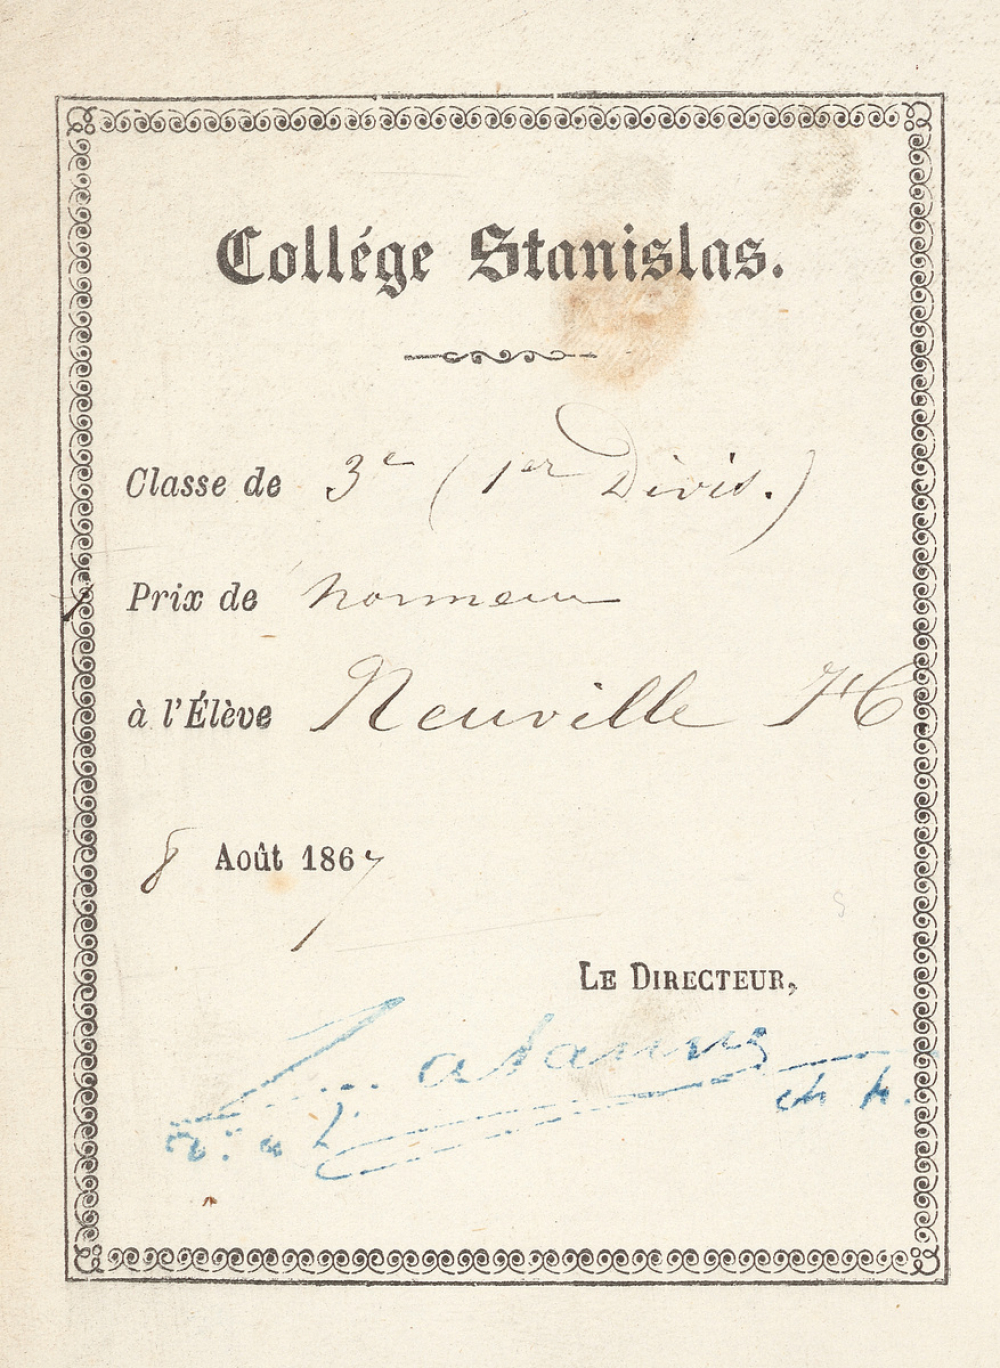 Collége Stanislas.
Classe de 3e (1er Divis.)
Prix de honneur
à l'Élève Neuville H
8 Août 1867
LE DIRECTEUR,